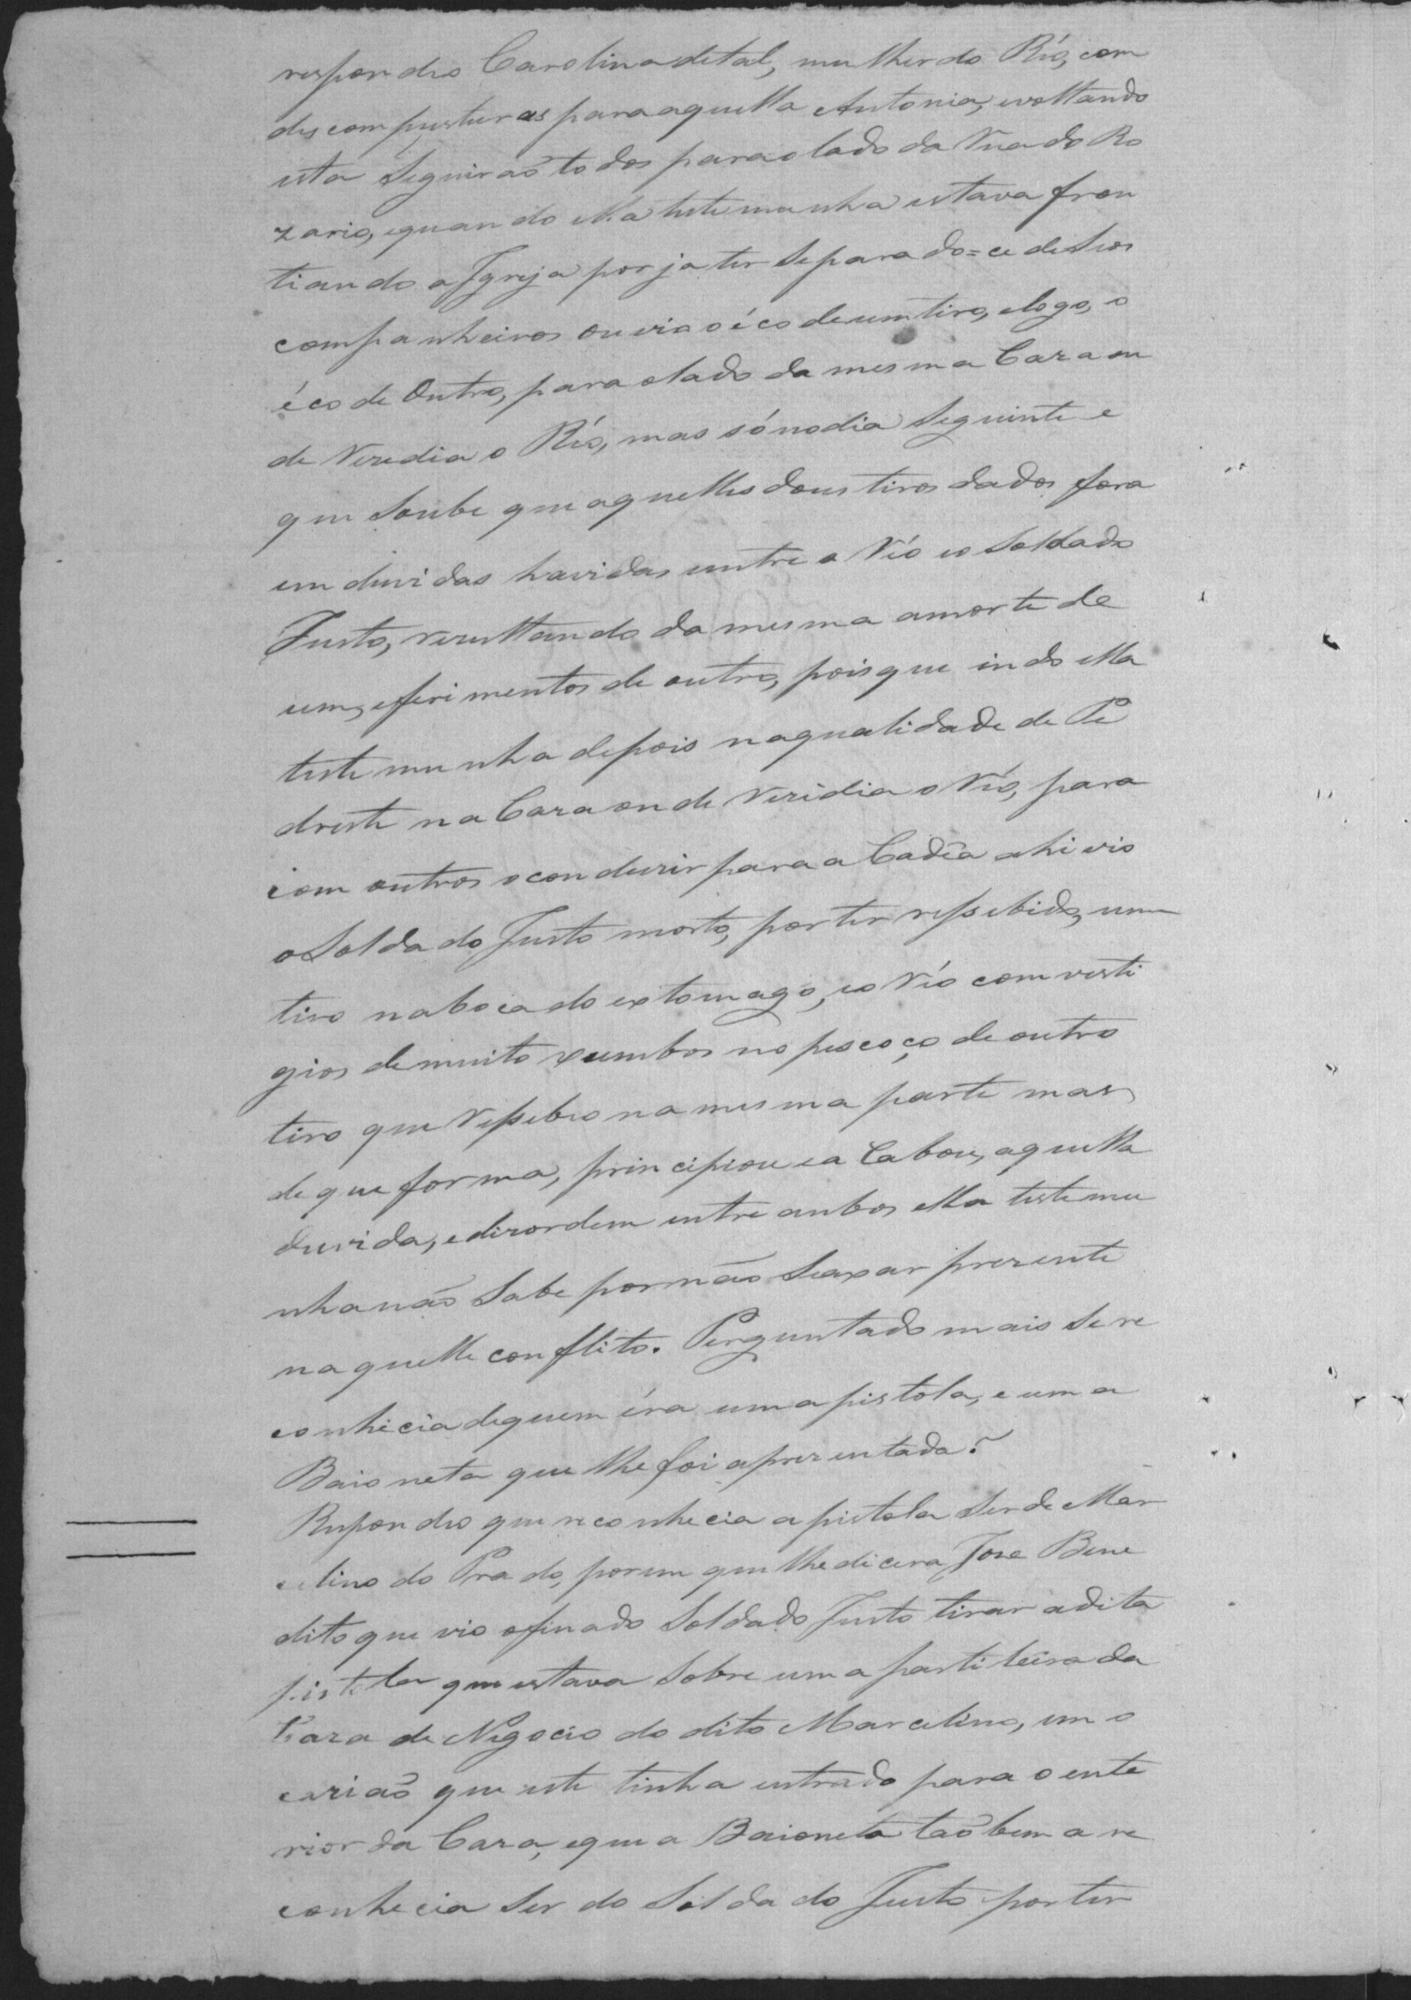 respondeo Carolina de tal, mulher do Réo, com
descomposturas para aquella Antonia, e voltando
esta seguirão todos para o lado da Rua do Ro
zario, e quando ella testemunha estava fron
tiando a Igreja por ja ter separado=ce de seos
companheiros ouvio o éco de um tiro, e logo, o
éco de Outro, para o lado da mesma Caza on
de Rezedia o Réo, mas só no dia seguinte e
que soube que aquelles dous tiros dados fora
em duvidas havidas entre o Réo e o Soldado
Justo, rezultando da mesma a morte de
um, e ferimentos de outro, pois que indo ella
testemunha depois na qualidade de Pe
dreste na Caza onde Rezidia o Réo, para
com outros o conduzir para a Cadêa ahi vio
o Soldado Justo morto, por ter ressebido, um
tiro na boca do extomago, e o Réo com vesti
gios de muito xumbos no pescoço de outro
tiro que Ressebeo na mesma parte mas
de que forma, principiou e a Cabou, aquella
duvida, e dizordem entre anbos ella testemu
nha não Sabe por não Seaxar prezente
naquelle conflito. Perguntado mais se re
conhecia de quem éra uma pistola, e uma
Baioneta que lhe foi aprezentada?
Respondeo que reconhecia a pistola ser de Mar
celino do Prado, porem que lhe dicera Jose Bene
dito que vio o finado Soldado Justo tirar a dita
pistola que estava sobre uma partileira da
Caza de Negocio do dito Marcelino, em o
cazião que este tinha entrado para o ente
rior da Caza, e que a Baioneta tão bem a re
conhecia ser do Soldado Justo por ter